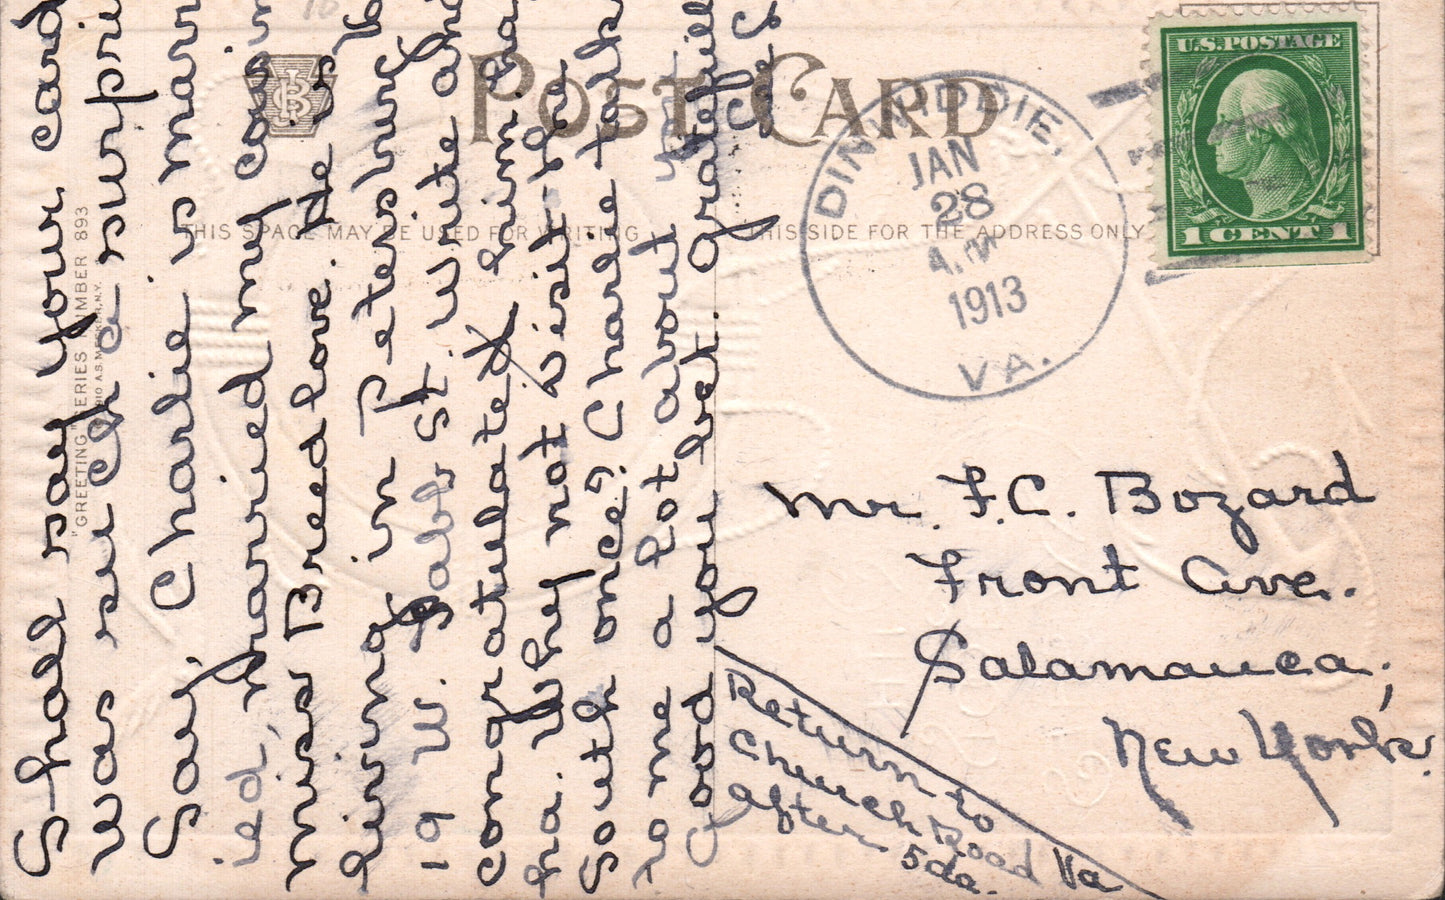 POST CARD
THIS SPACE MAY BE USED FOR WRITING
THIS SIDE FOR THE ADDRESS ONLY
"GREETING" SERIES NUMBER 893
U.S. POSTAGE
1 CENT 1
DINWIDDIE,
JAN
28
A.M
1913
VA.
Mr. F. C. Bozard
Front Ave.
Salamanca,
New York.
Return to
Church Road Va
after 5 da.
Shall say your card
was such a surpri
Say, Charlie is marr
ied, married my cousin
Miss Breedlove. He is
living in Petersburg
19 W. Tabb St. write and
congratulate him ha
ha. Why not visit the
South once? Charlie talks
to me a lot about you
Good you bet. Gratefully